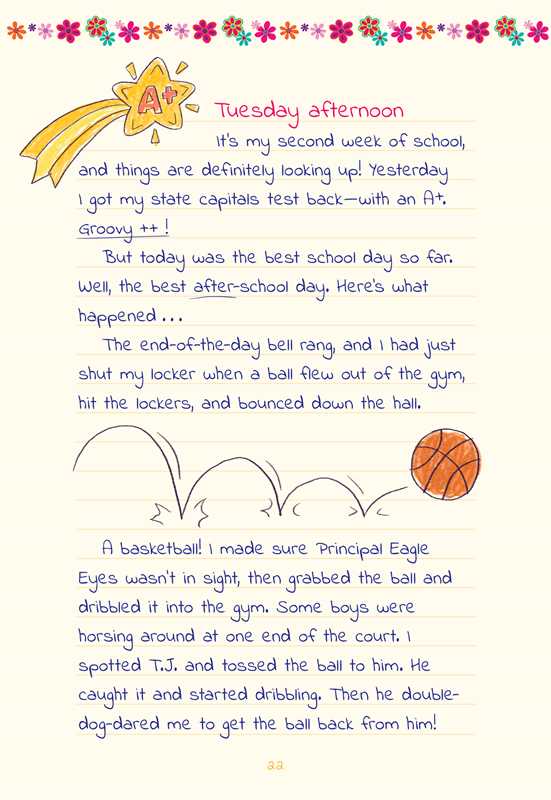 A+
Tuesday afternoon
It's my second week of school,
and things are definitely looking up! Yesterday
I got my state capitals test back—with an A+.
Groovy ++ !
But today was the best school day so far.
Well, the best after-school day. Here's what
happened . . .
The end-of-the-day bell rang, and I had just
shut my locker when a ball flew out of the gym,
hit the lockers, and bounced down the hall.
A basketball! I made sure Principal Eagle
Eyes wasn't in sight, then grabbed the ball and
dribbled it into the gym. Some boys were
horsing around at one end of the court. I
spotted T.J. and tossed the ball to him. He
caught it and started dribbling. Then he double-
dog-dared me to get the ball back from him!
22